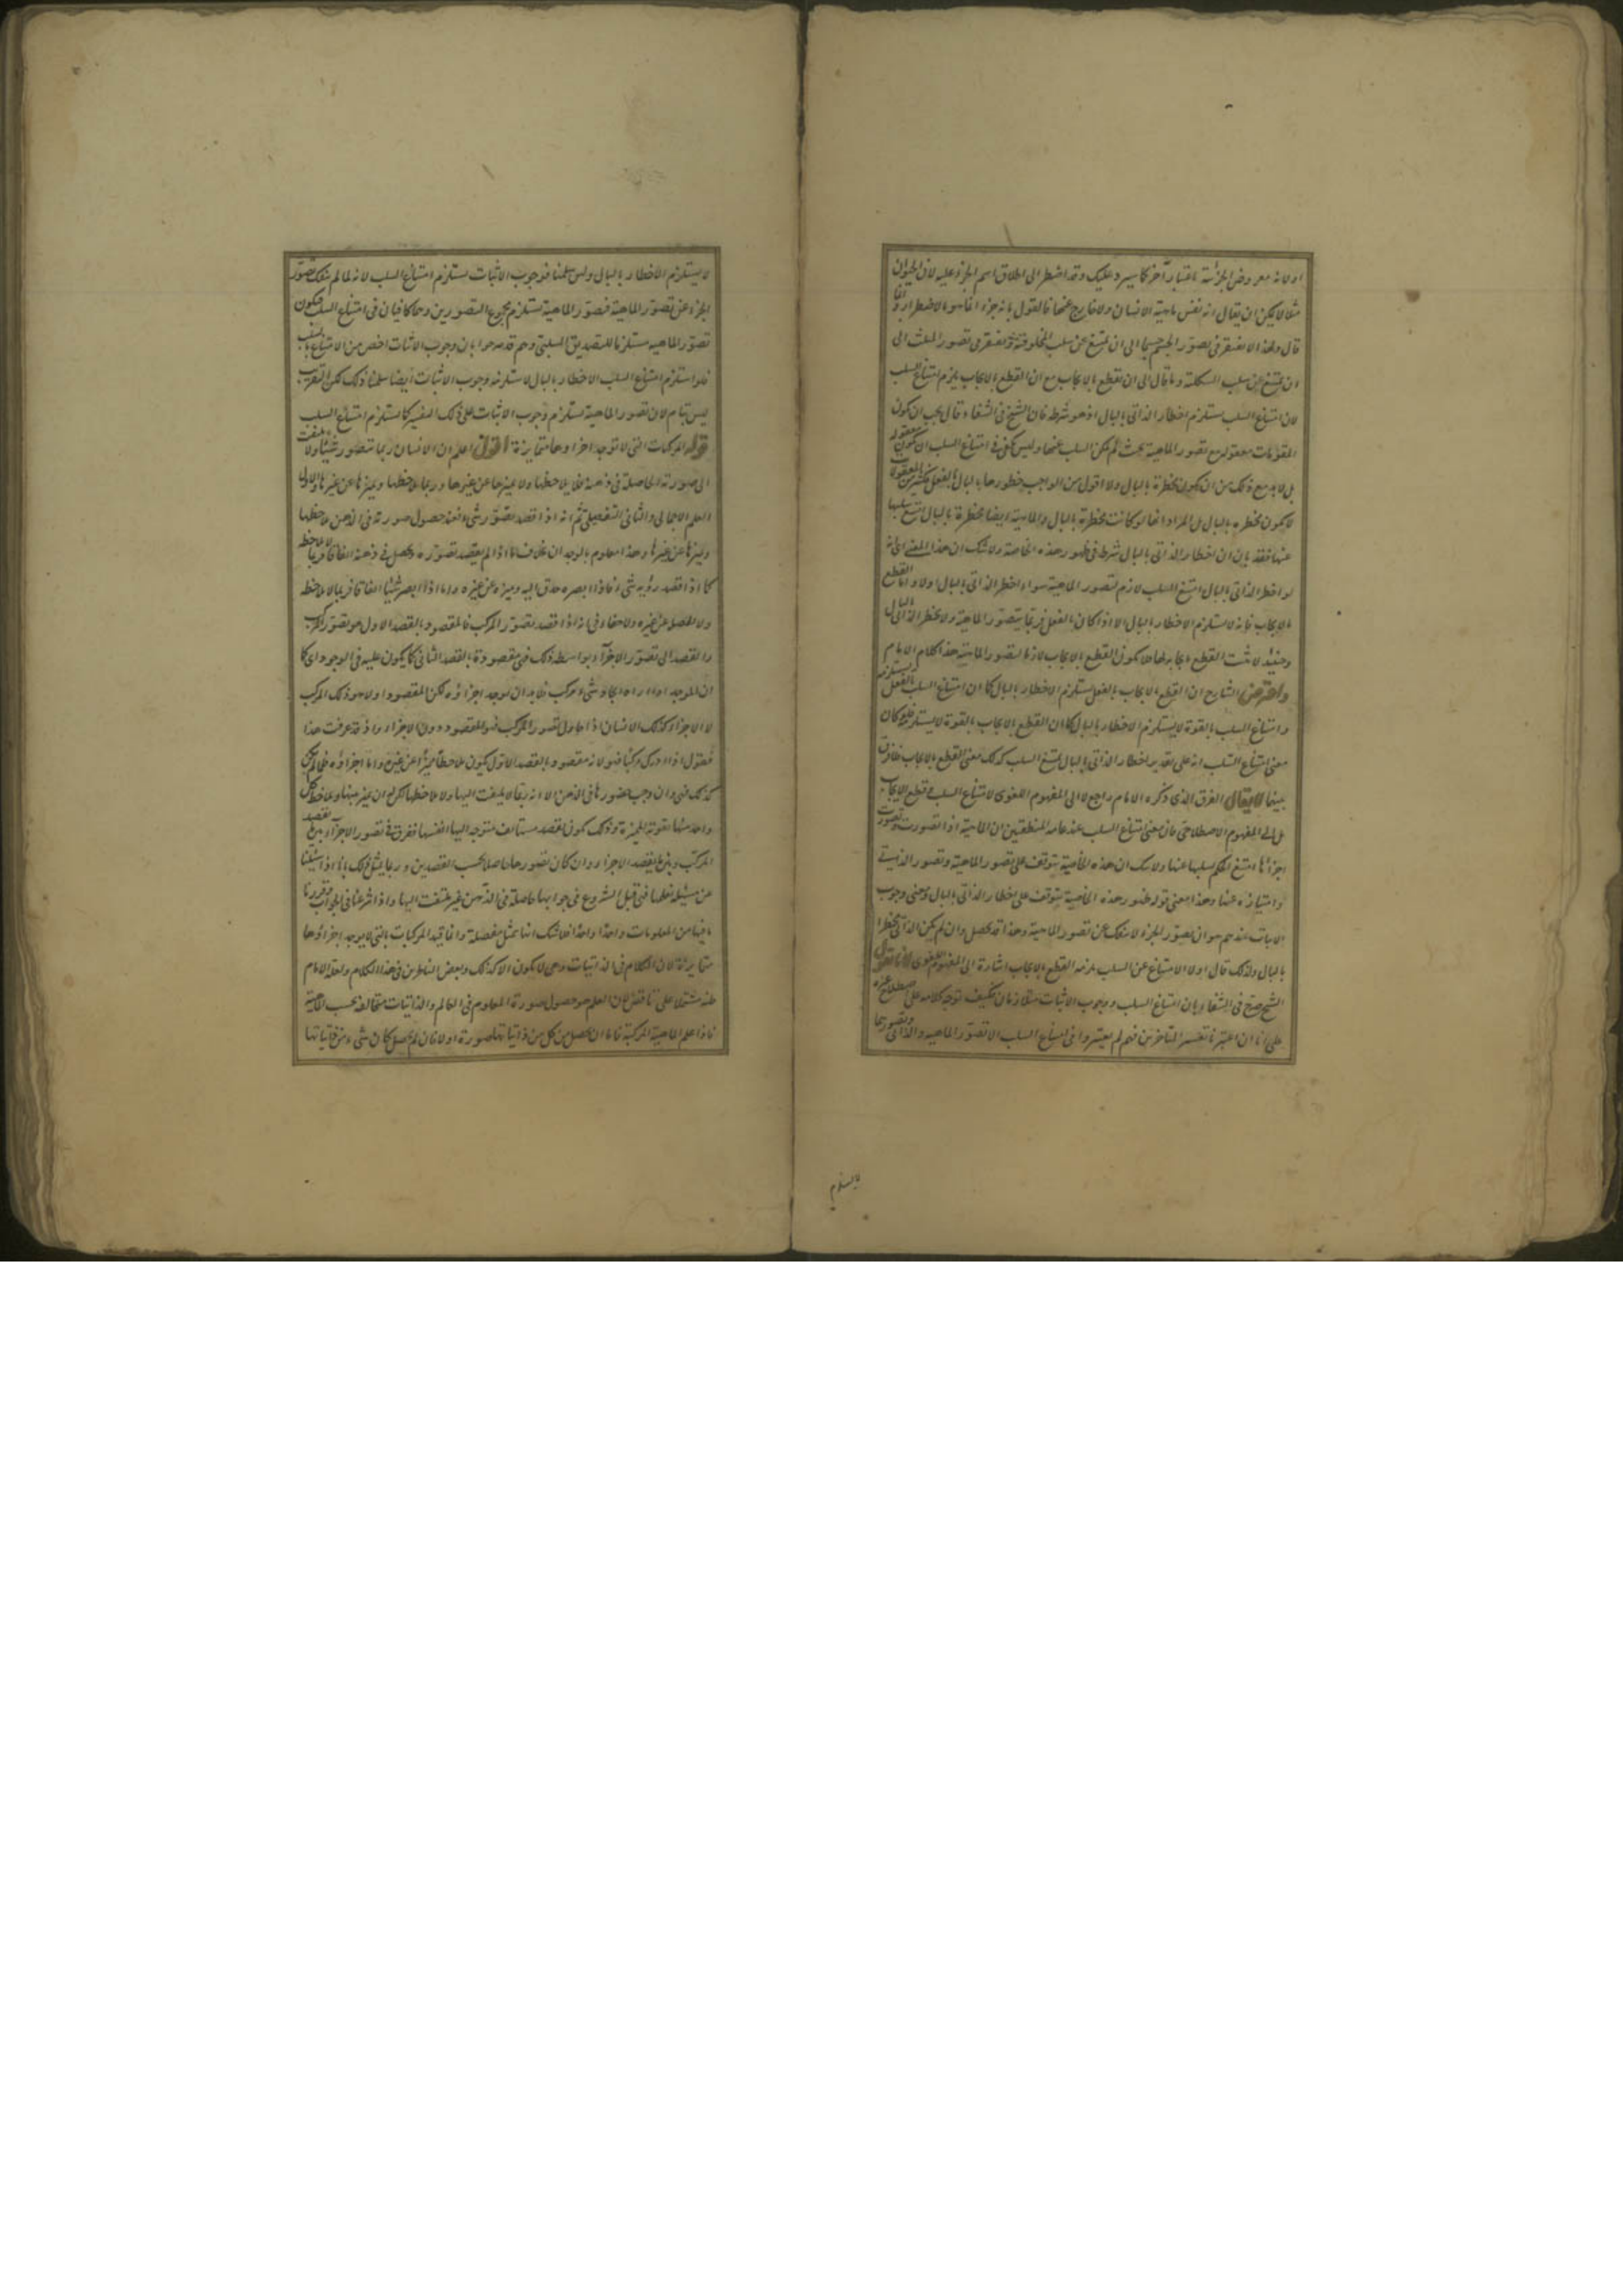 او لانه معروض الجزئية باعتبار آخر كما سيرد عليك وقد اضطر الى اطلاق اسم الجزء عليه لان الحيوان
مثلا لا يمكن ان يقال انه نفس ماهية الانسان ولا خارج عنها فالقول بانه جزء انما هو بالاضطرار وانما
قال ولهذا لا نفتقر فى تصور الجسم جسما الى ان نمتنع عن سلب المخلوقية ونفتقر فى تصور المثلث الى
ان نمتنع عن سلب الشكلية وما قال الى ان نقطع بالايجاب مع ان القطع بالايجاب يلزم امتناع السلب
لان امتناع السلب مستلزم اخطار الذاتى بالبال اذ هو شرطه فان الشيخ فى الشفاء قال يجب ان يكون
المقومات معقولة مع تصور الماهية بحيث لم يمكن السلب عنها وليس يكفى فى امتناع السلب ان يكون معقولة
بل لابد مع ذلك من ان يكون مخطرة بالبال ولا اقول من الواجب خطورها بالبال بالفعل فكثير من المعقولات
لا يكون مخطره بالبال بل المراد انها لو كانت مخطرة بالبال والماهية ايضا مخطرة بالبال امتنع سلبها
عنها فقد بان ان اخطار الذاتى بالبال شرط فى ظهور هذه الخاصة ولا شك ان هذا المعنى اى انه
لو اخطر الذاتى بالبال امتنع السلب لازم لتصور الماهية سواء اخطر الذاتى بالبال اولا واما القطع
بالايجاب فانه لا يستلزم الاخطار بالبال الا اذا كان بالفعل فربما يتصور الماهية ولا يخطر الذاتى بالبال
وحينئذ لا يثبت القطع بايجابه لها فلا يكون القطع بالايجاب لازما لتصور الماهية هذا كلام الامام
واعترض الشارح ان القطع بالايجاب بالفعل يستلزم الاخطار بالبال كما ان امتناع السلب بالفعل يستلزمه
وامتناع السلب بالقوة لا يستلزم الاخطار بالبال كما ان القطع بالايجاب بالقوة لا يستلزمه فلو كان
معنى امتناع السلب انه على تقدير اخطار الذاتى بالبال يمتنع السلب كذلك معنى القطع بالايجاب فلا فرق
بينهما لا يقال الفرق الذى ذكره الامام راجع لا الى المفهوم اللغوى لامتناع السلب وقطع الايجاب
بل الى المفهوم الاصطلاحى فان معنى امتناع السلب عند عامه المنطقيين ان الماهية اذا تصورت وتصورت
اجزائها امتنع الحكم بسلبها عنها ولا شك ان هذه الخاصية يتوقف على تصور الماهية وتصور الذاتى
وامتيازه عنها وهذا معنى قوله ظهور هذه الخاصية يتوقف على اخطار الذاتى بالبال ومعنى وجوب
الاثبات عندهم هو ان تصور الجزء لا ينفك عن تصور الماهية وهذا قد يحصل وان لم يكن الذاتى مخطرا
بالبال ولذلك قال اولا الامتناع عن السلب يلزمه القطع بالايجاب اشارة الى المفهوم اللغوى لانا نقول
الشيخ صرح فى الشفاء بان امتناع السلب ووجوب الاثبات متلازمان فكيف توجه كلامه على اصطلاح غيره
على انا ان اعتبرنا تفسير المتاخرين فهم لم يعتبروا فى امتناع السلب الا تصور الماهيه والذاتى وتصورهما
لا يستلزم
لا يستلزم الاخطار بالبال ولئن سلمنا فوجوب الاثبات يستلزم امتناع السلب لانه لما لم ينفك تصور
الجزء عن تصور الماهية فتصور الماهية يستلزم مجموع التصورين وهما كافيان فى امتناع السلب فيكون
تصور الماهيه مستلزما للتصديق السلبى وهم قد صرحوا بان وجوب الاثبات اخص من الامتناع بالسلب
فلو استلزم امتناع السلب الاخطار بالبال لاستلزمه وجوب الاثبات ايضا سلمنا ذلك لكن التقريب
ليس بتام لان تصور الماهية يستلزم وجوب الاثبات على ذلك التفسير كما يستلزم امتناع السلب
قوله المركبات التى لا توجد اجزاوها متمايزة اقول اعلم ان الانسان ربما يتصور شيئا ولا يلتفت
الى صورته الحاصلة فى ذهنه فلا يلاحظها ولا يميزها عن غيرها وربما يلاحظها ويميزها عن غيرها والاول
العلم الاجمالى والثانى التفصيلى ثم انه اذا قصد تصور شىء فعند حصول صورته فى الذهن يلاحظها
ويميزها عن غيرها وهذا معلوم بالوجدان بخلاف ما اذا لم يقصد تصوره ويحصل فى ذهنه اتفاقا فربما لا يلاحظه
كما اذا قصد رؤية شىء فاذا ابصره حدق اليه وميزه عن غيره واما اذا ابصر شيئا اتفاقا فربما لا يلاحظه
ولا يفصله عن غيره ولا خفاء فى انه اذا قصد تصور المركب فالمقصود بالقصد الاول هو تصور المركب
والقصد الى تصور الاجزاء بواسطه ذلك فهى مقصودة بالقصد الثانى كما يكون عليه فى الوجود اى كما
ان الموجد اذا اراد ايجاد شىء مركب فلابد ان يوجد اجزاؤه لكن المقصود اولا هو ذلك المركب
لا الاجزاء كذلك الانسان اذا حاول تصور المركب فهو المقصود دون الاجزاء واذ قد عرفت هذا
فنقول اذا ادرك مركبا فهو لانه مقصود بالقصد الاول يكون ملاحظا مميزا عن غيره واما اجزاؤه فلما لم يكن
كذلك فهى وان وجب حضورها فى الذهن الا انه ربما لا يلتفت اليها ولا يلاحظها لكن له ان يميز بينها ويلاحظ كل
واحد منها بقوته المميزة وذلك يكون بقصد مستأنف متوجه اليها انفسها ففرق فى تصور الاجزاء بين قصد
المركب وبين قصد الاجزاء وان كان تصورها حاصلا بحسب القصدين وربما يمثل ذلك بانا اذا سئلنا
عن مسئلة نعلمها فهى قبل الشروع فى جوابها حاصلة فى الذهن غير ملتفت اليها واذا شرعنا فى الجواب وقررنا
ما فيها من المعلومات واحدا واحدا فلا شك انها تمثل مفصلة وانما قيد المركبات بالتى لا يوجد اجزاؤها
متمايزة لان الكلام فى الذاتيات وهى لا يكون الا كذلك وبعض الناظرين فى هذا الكلام ولعله الامام
ظنه مشتملا على تناقض لان العلم هو حصول صورة المعلوم فى العالم والذاتيات متخالفة بحسب الماهية
فاذا علم الماهية المركبة فاما ان يحصل من كل من ذاتياتها صورة اولا فان لم يحصل كان شىء من ذاتياتها